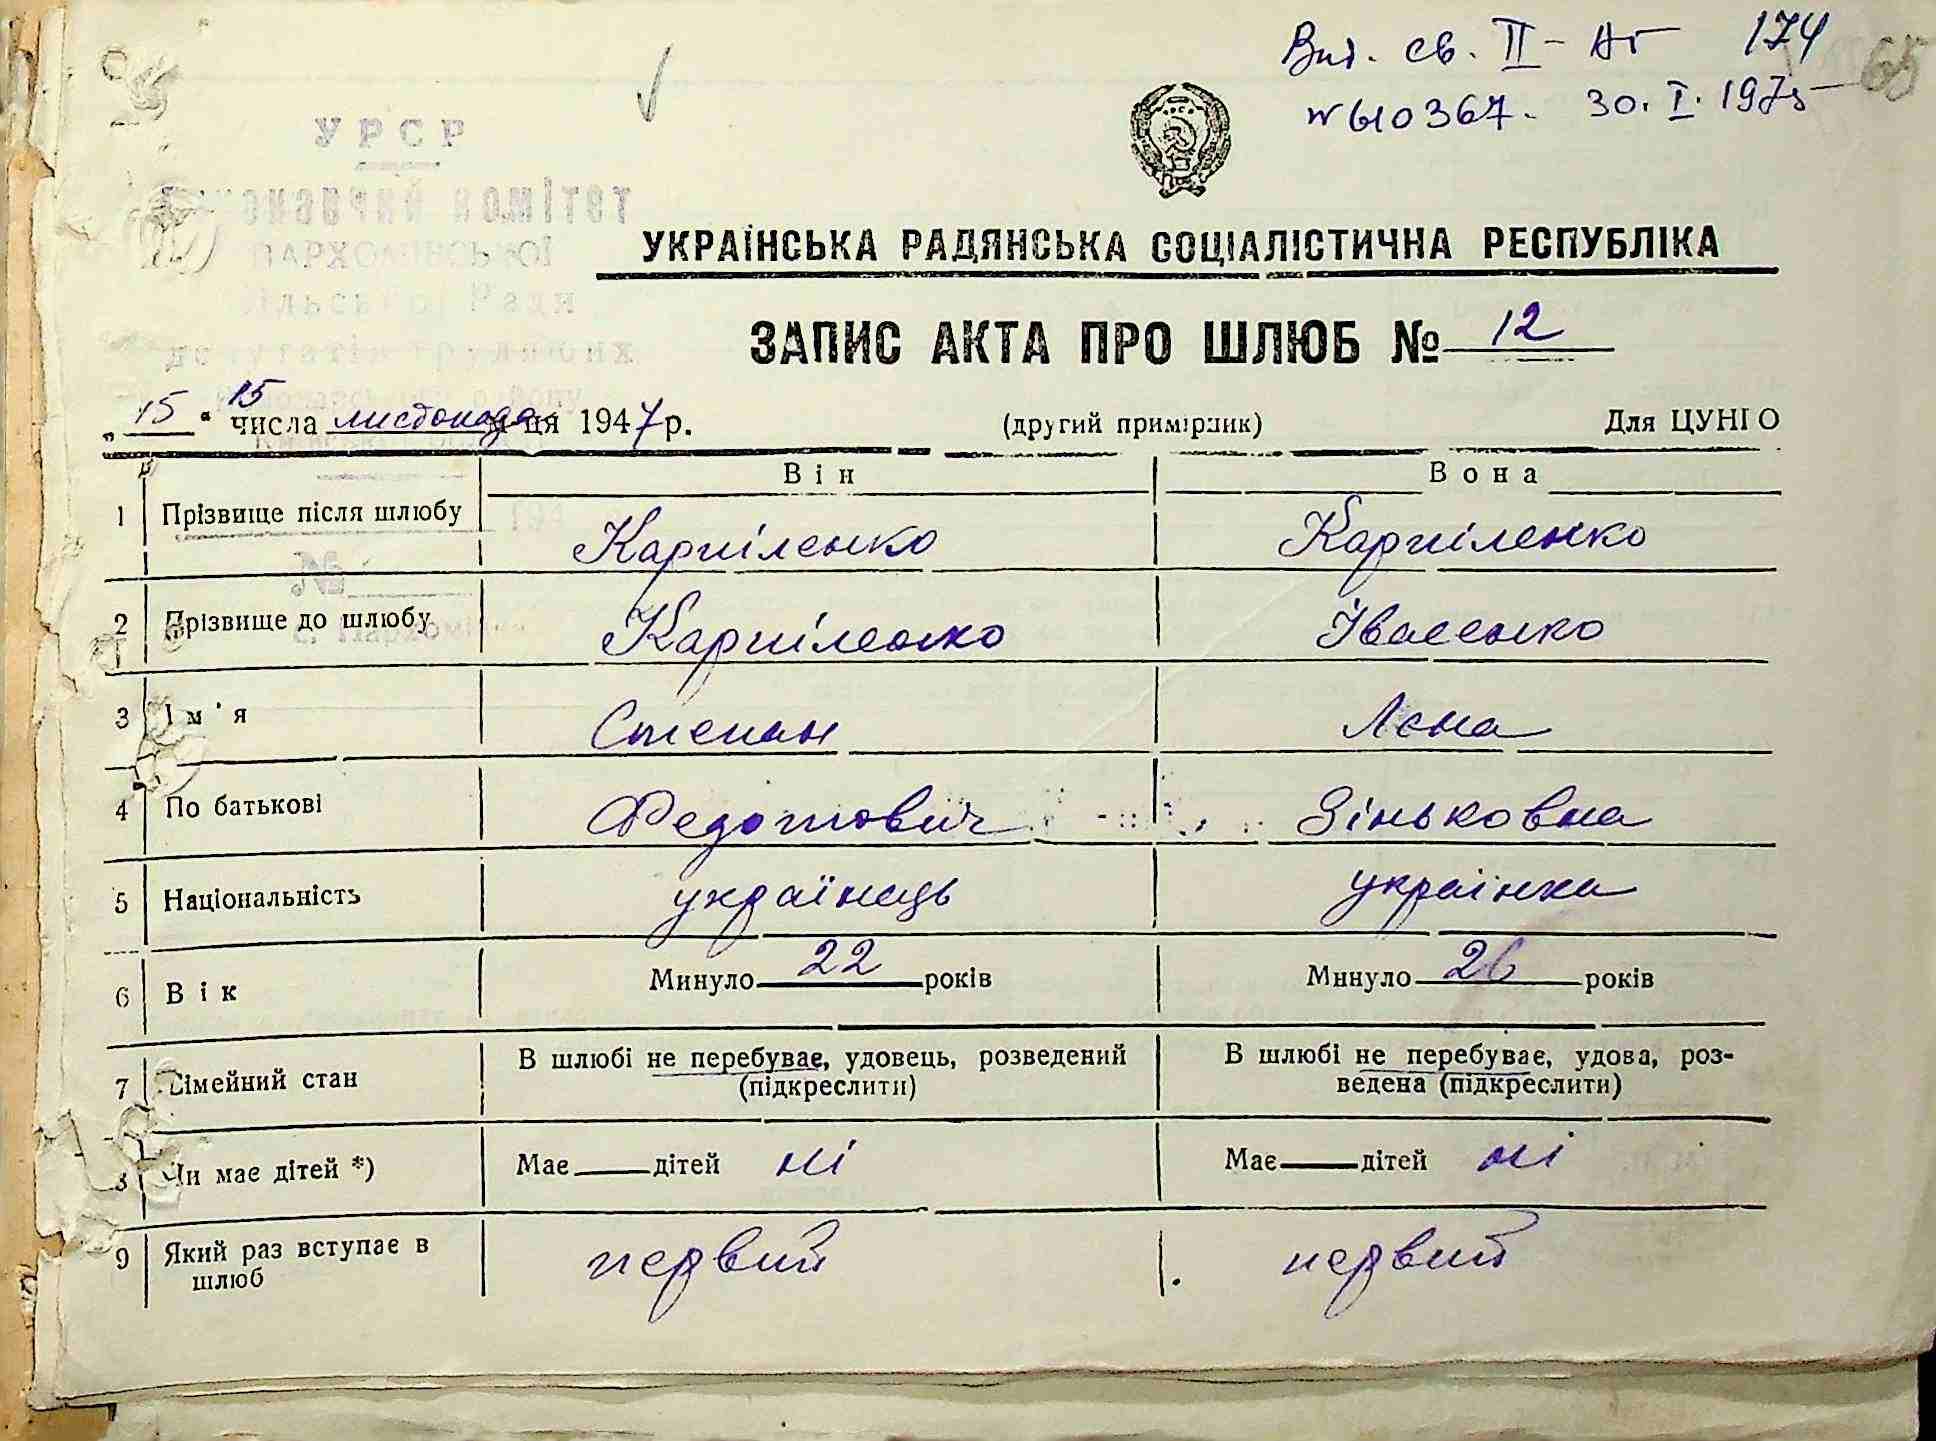 Вид. св. ІІ-АГ 174
65
№ 610367. 30.I.1975
УРСР
комітет
ПАРХОМІВСЬКОЇ
Ради
УКРАЇНСЬКА РАДЯНСЬКА СОЦІАЛІСТИЧНА РЕСПУБЛІКА
ЗАПИС АКТА ПРО ШЛЮБ № 12
15
„15“ числа листопада м-ця 1947 р. (другий примірник) Для ЦУНГО
Він Вона
1 Прізвище після шлюбу Карпіленко Карпіленко
№
2 Прізвище до шлюбу Карпіленко Івасенко
3 Ім'я Степан Лєна
4 По батькові Федотович Зіньковна
5 Національність українець українка
6 Вік Минуло 22 років Минуло 26 років
7 Сімейний стан В шлюбі не перебуває, удовець, розведений (підкреслити) В шлюбі не перебуває, удова, роз-
ведена (підкреслити)
8 Чи має дітей *) Має — дітей ні Має — дітей ні
9 Який раз вступає в шлюб первий первий